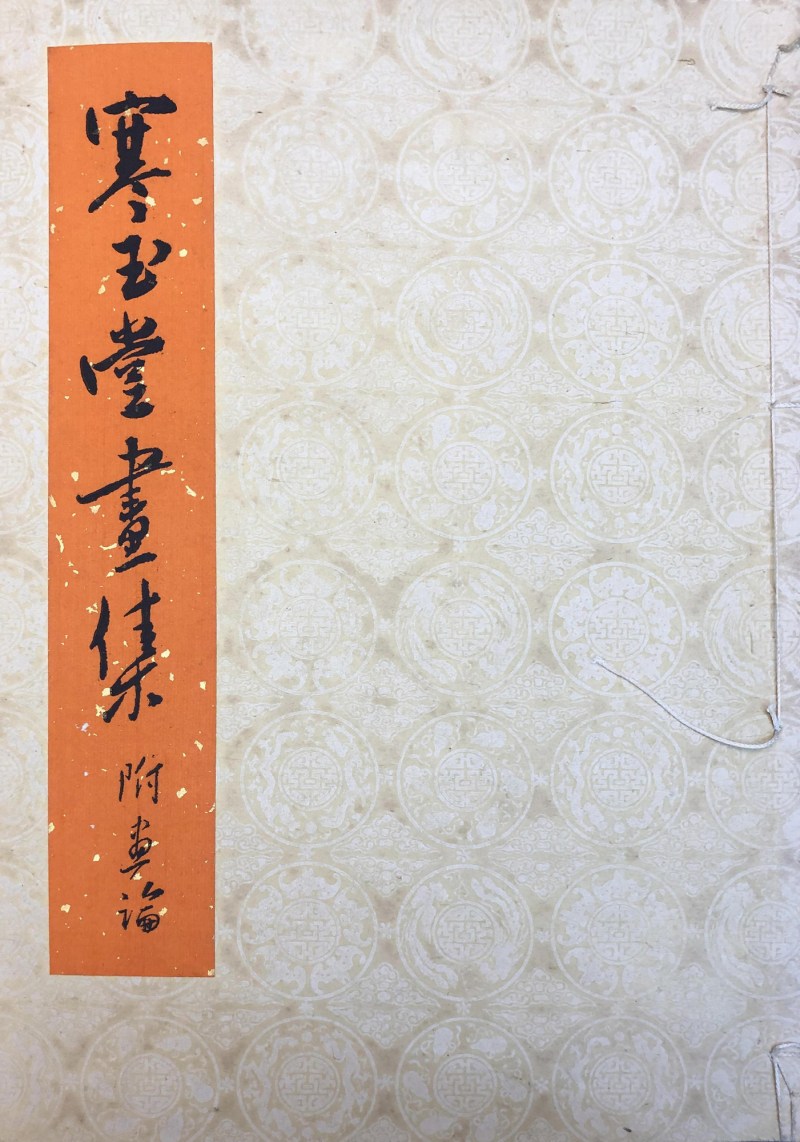 寒玉堂畫集
附畫論